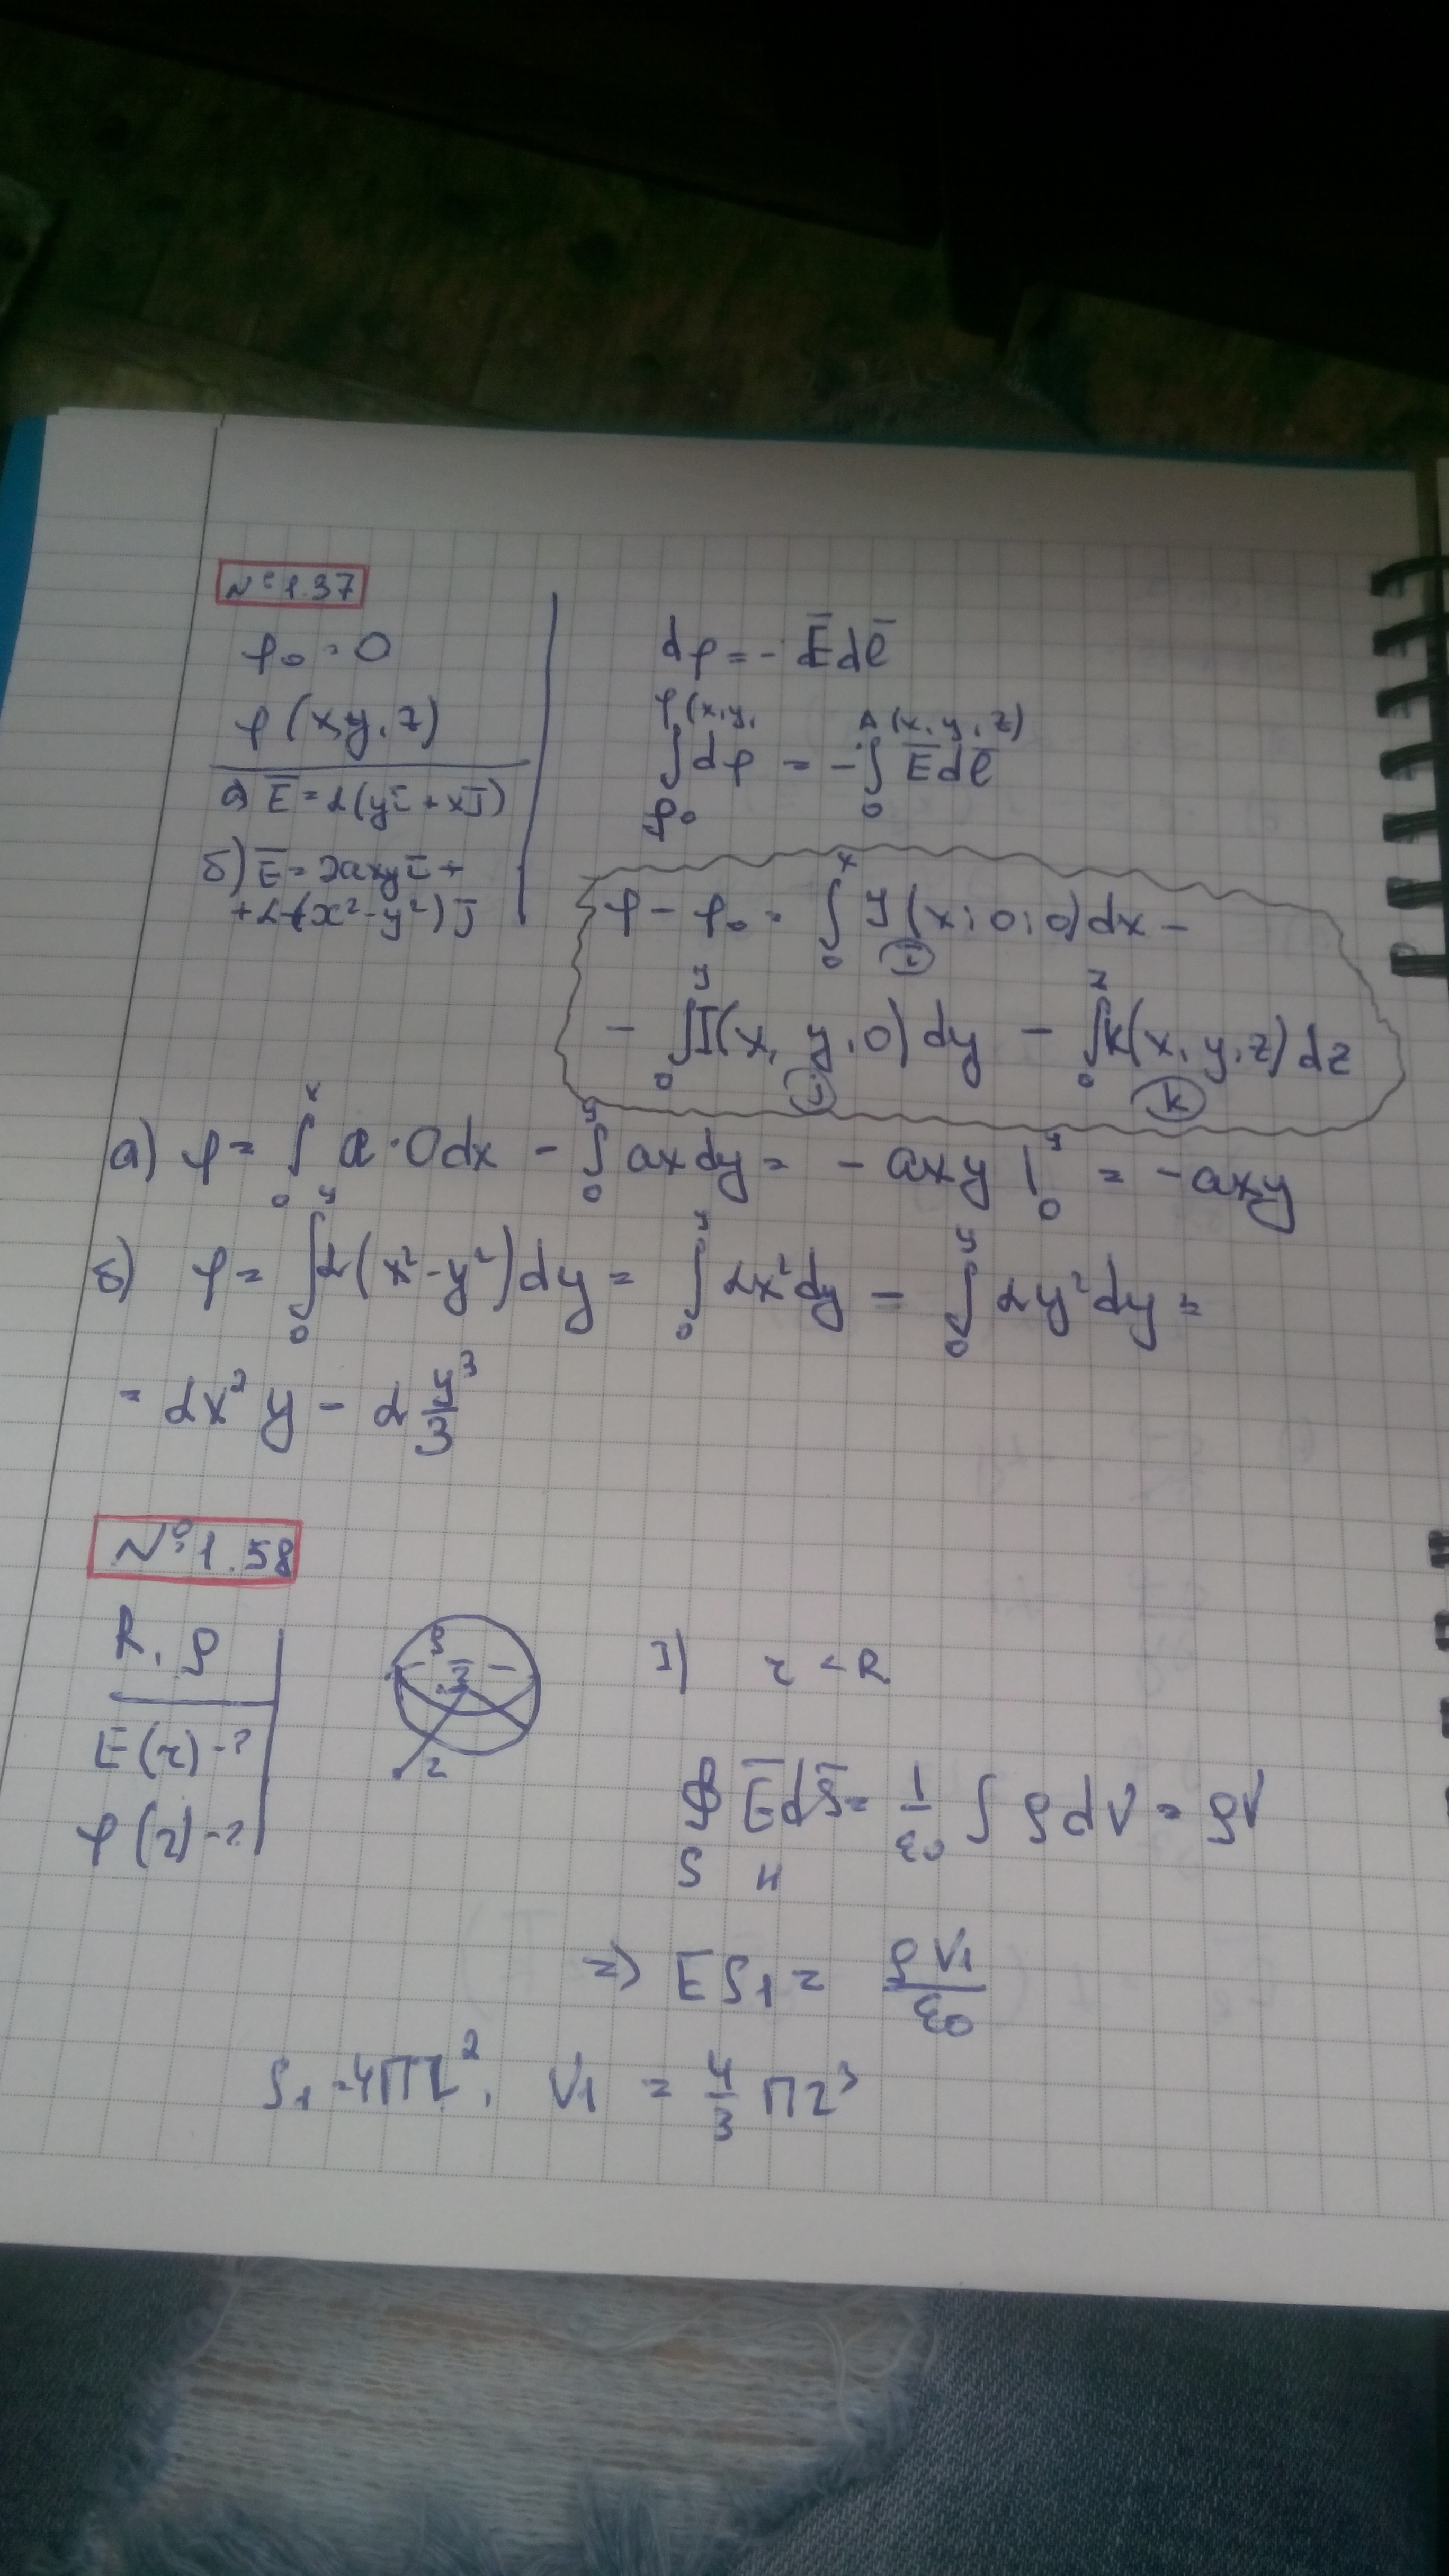 № 1.37
φ₀ = 0
φ(x,y,z)
а) E̅ = α(yi̅ + xj̅)
б) E̅ = 2axyi̅ +
+ α(x² - y²)j̅
dφ = - E̅dl̅
φ(x,y,
∫dφ = -∫E̅dl̅
φ₀
A(x,y,z)
0
φ - φ₀ = ∫₀ˣ y(x;0;0)dx -
ⓘ
- ∫₀ʸ I(x,y,0)dy - ∫₀ᶻ k(x,y,z)dz
ⓙ ⓚ
а) φ = ∫₀ˣ a·0dx - ∫₀ʸ axdy = - axy |₀ʸ = -axy
б) φ = ∫₀ʸ α(x²-y²)dy = ∫₀ʸ αx²dy - ∫₀ʸ αy²dy =
= αx²y - α y³/3
№ 1.58
R, ρ
E(r) - ?
φ(r) - ?
ρ
r
1) r < R
∮ E̅dS̅ = 1/ε₀ ∫ ρdV = ρV
S
=> ES₁ = ρV₁/ε₀
S₁ = 4πr², V₁ = 4/3 πr³